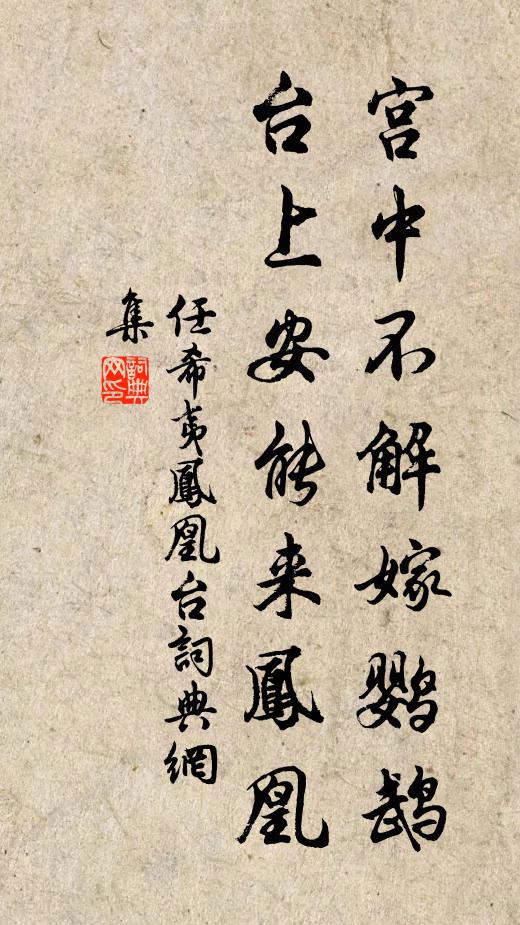 宫中不解嫁鹦鹉
台上安能来鳳凰
任希夷鳳凰台詞典網
集
詞典网印